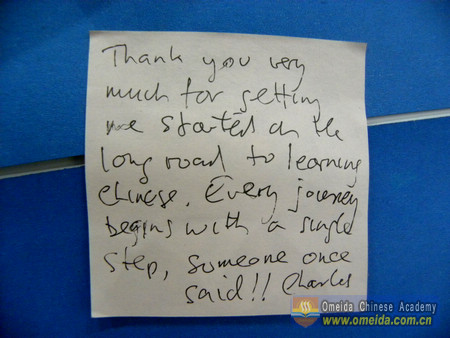 Thank you very
much for getting
me started on the
long road to learning
Chinese. Every journey
begins with a single
step, someone once
said!! Charles
Omeida Chinese Academy
www.omeida.com.cn